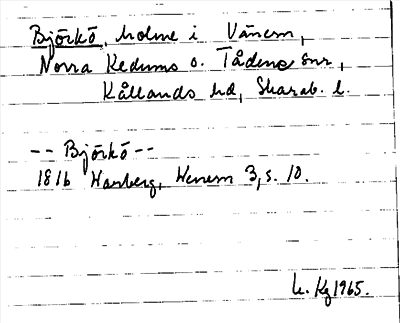 Björkö, holme i Vänern,
Norra Kedums o. Tådene snr,
Kållands hd, Skarab. l.
-- Björkö --
1816 Warberg, Wenern 3, s. 10.
1965.